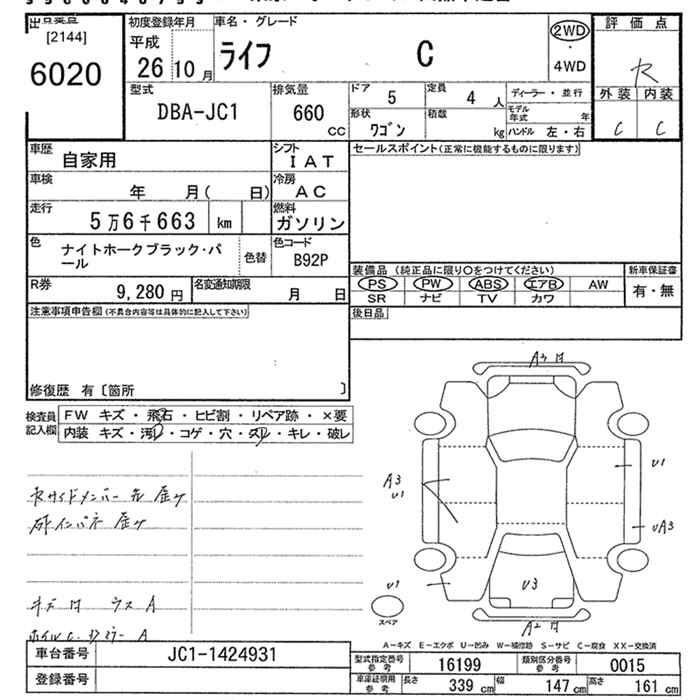 [2144]
6020
初度登録年月
平成
26 10 月
車名・グレード
ライフ C
2WD
・
4WD
評価点
R
外装 内装
C C
型式
DBA-JC1
排気量
660
CC
ドア
5
定員
4 人
形状
ワゴン
積数
kg
ディーラー・並行
モデル年式 年
ハンドル 左・右
車歴
自家用
シフト
IAT
車検
年 月( 日)
冷房
AC
走行
5万6千663 km
燃料
ガソリン
色
ナイトホークブラック・パール
色替
色コード
B92P
R券
9,280 円
名変通知期限
月 日
セールスポイント(正常に機能するものに限ります)
装備品 (純正品に限り○をつけてください)
PS PW ABS エアB AW
SR ナビ TV カワ
新車保証書
有・無
後日品
注意事項申告欄(不具合内容等は具体的に記入して下さい)
修復歴 有〔箇所 〕
検査員
記入欄
FW キズ・飛石・ヒビ割・リペア跡・×要
内装 キズ・汚レ・コゲ・穴・スレ・キレ・破レ
A3
U1
U1
UA3
U1
U3
スペア
A-キズ E-エクボ U-凹み W-補修跡 S-サビ C-腐食 XX-交換済
車台番号
JC1-1424931
登録番号
型式指定番号
参考
16199
類別区分番号
参考
0015
車庫証明用
参考
長さ 339 cm 幅 147 cm 高さ 161 cm